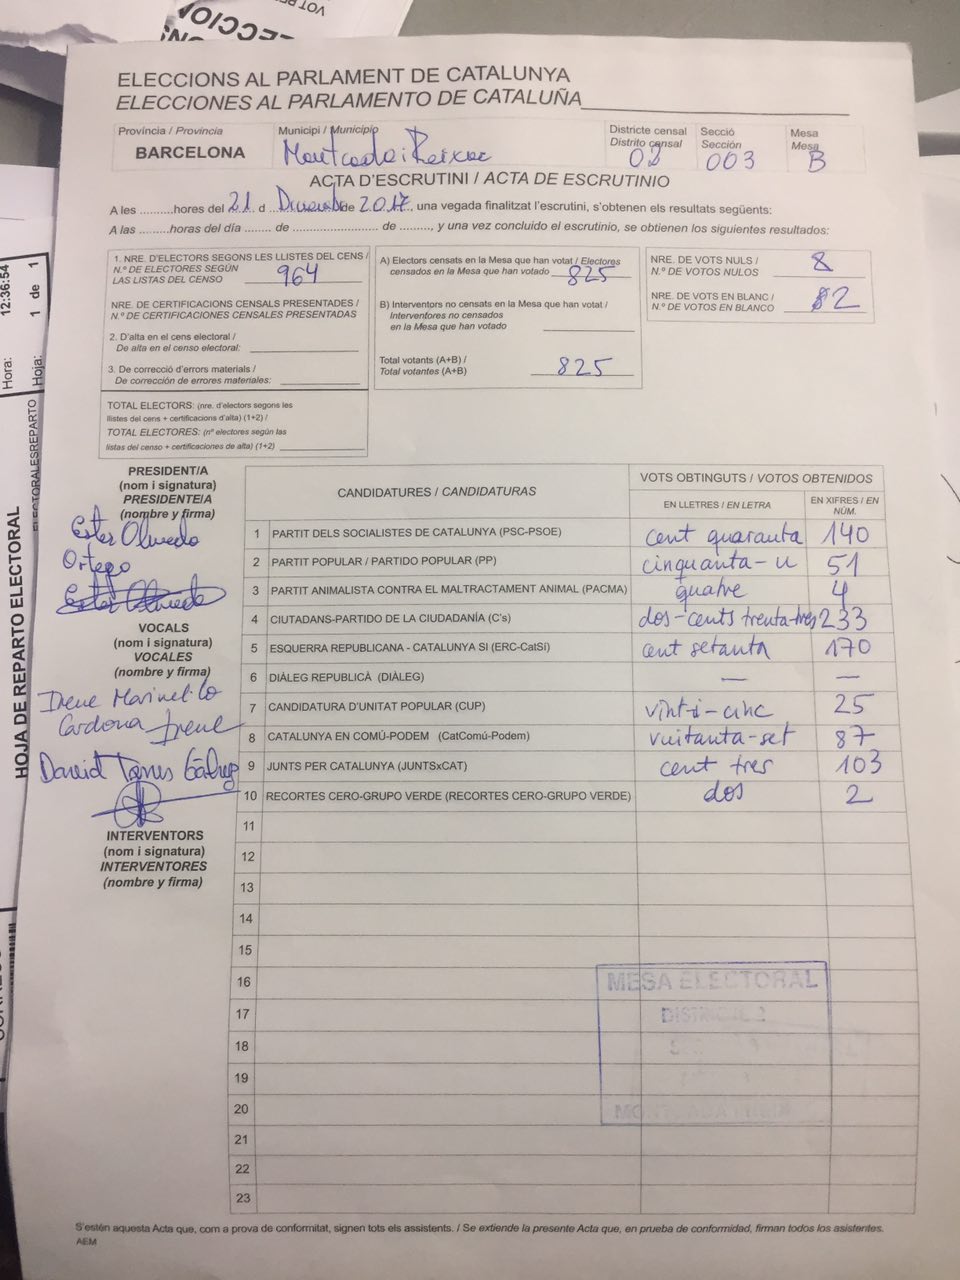 ELECCIONS AL PARLAMENT DE CATALUNYA
ELECCIONES AL PARLAMENTO DE CATALUÑA
Província / Provincia
BARCELONA
Municipi / Municipio
Montcada i Reixac
Districte censal
Distrito censal
02
Secció
Sección
003
Mesa
Mesa
B
ACTA D'ESCRUTINI / ACTA DE ESCRUTINIO
A les ..........hores del 21. d ...Desembre de 2017, una vegada finalitzat l'escrutini, s'obtenen els resultats següents:
A las .........horas del día ........ de ......................... de ........., y una vez concluido el escrutinio, se obtienen los siguientes resultados:
1. NRE. D'ELECTORS SEGONS LES LLISTES DEL CENS /
N.º DE ELECTORES SEGÚN
LAS LISTAS DEL CENSO 964
NRE. DE CERTIFICACIONS CENSALS PRESENTADES /
N.º DE CERTIFICACIONES CENSALES PRESENTADAS
2. D'alta en el cens electoral /
De alta en el censo electoral:
3. De correcció d'errors materials /
De corrección de errores materiales:
TOTAL ELECTORS: (nre. d'electors segons les
llistes del cens + certificacions d'alta) (1+2) /
TOTAL ELECTORES: (nº electores según las
listas del censo + certificaciones de alta) (1+2)
A) Electors censats en la Mesa que han votat / Electores
censados en la Mesa que han votado 825
B) Interventors no censats en la Mesa que han votat /
Interventores no censados
en la Mesa que han votado
Total votants (A+B) /
Total votantes (A+B) 825
NRE. DE VOTS NULS /
N.º DE VOTOS NULOS 8
NRE. DE VOTS EN BLANC /
N.º DE VOTOS EN BLANCO 2
PRESIDENT/A
(nom i signatura)
PRESIDENTE/A
(nombre y firma)
Ester Olmedo
Ortego
Ester Olmedo
VOCALS
(nom i signatura)
VOCALES
(nombre y firma)
Irene Marinel·lo
Cardona Irene
David Torres
INTERVENTORS
(nom i signatura)
INTERVENTORES
(nombre y firma)
CANDIDATURES / CANDIDATURAS
VOTS OBTINGUTS / VOTOS OBTENIDOS
EN LLETRES / EN LETRA
EN XIFRES / EN NÚM.
1 PARTIT DELS SOCIALISTES DE CATALUNYA (PSC-PSOE) cent quaranta 140
2 PARTIT POPULAR / PARTIDO POPULAR (PP) cinquanta-u 51
3 PARTIT ANIMALISTA CONTRA EL MALTRACTAMENT ANIMAL (PACMA) quatre 4
4 CIUTADANS-PARTIDO DE LA CIUDADANÍA (C's) dos-cents trenta-tres 233
5 ESQUERRA REPUBLICANA - CATALUNYA SI (ERC-CatSí) cent setanta 170
6 DIÀLEG REPUBLICÀ (DIÀLEG) — —
7 CANDIDATURA D'UNITAT POPULAR (CUP) vint-i-cinc 25
8 CATALUNYA EN COMÚ-PODEM (CatComú-Podem) vuitanta-set 87
9 JUNTS PER CATALUNYA (JUNTSxCAT) cent tres 103
10 RECORTES CERO-GRUPO VERDE (RECORTES CERO-GRUPO VERDE) dos 2
11
12
13
14
15
16
17
18
19
20
21
22
23
MESA ELECTORAL
DISTRICTE 2
S'estén aquesta Acta que, com a prova de conformitat, signen tots els assistents. / Se extiende la presente Acta que, en prueba de conformidad, firman todos los asistentes.
AEM
HOJA DE REPARTO ELECTORAL
Hora: 12:36:54
Hoja: 1 de 1